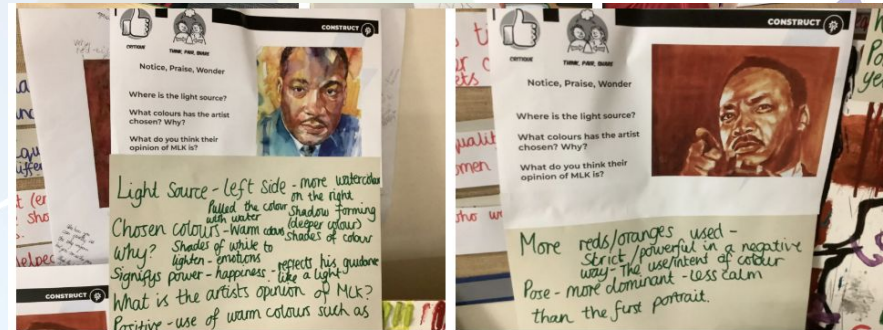 CONSTRUCT
CRITIQUE
THINK, PAIR, SHARE
Notice, Praise, Wonder
Where is the light source?
What colours has the artist
chosen? Why?
What do you think their
opinion of MLK is?
Light Source - left side - more watercolour
on the right
Pulled the colour
with water
Shadow forming
(deeper colour)
Chosen colours - Warm colours
shades of colour
Why? Shades of white to
lighten - emotions
Signifys power - happiness - reflects his guidance
like a light
What is the artists opinion of MLK?
Positive - use of warm colours such as
CONSTRUCT
CONSTRUCT
CRITIQUE
THINK, PAIR, SHARE
Notice, Praise, Wonder
Where is the light source?
What colours has the artist
chosen? Why?
What do you think their
opinion of MLK is?
More reds/oranges used -
Strict / powerful in a negative
way - The use/intent of colour
Pose - more dominant - less calm
than the first portrait.